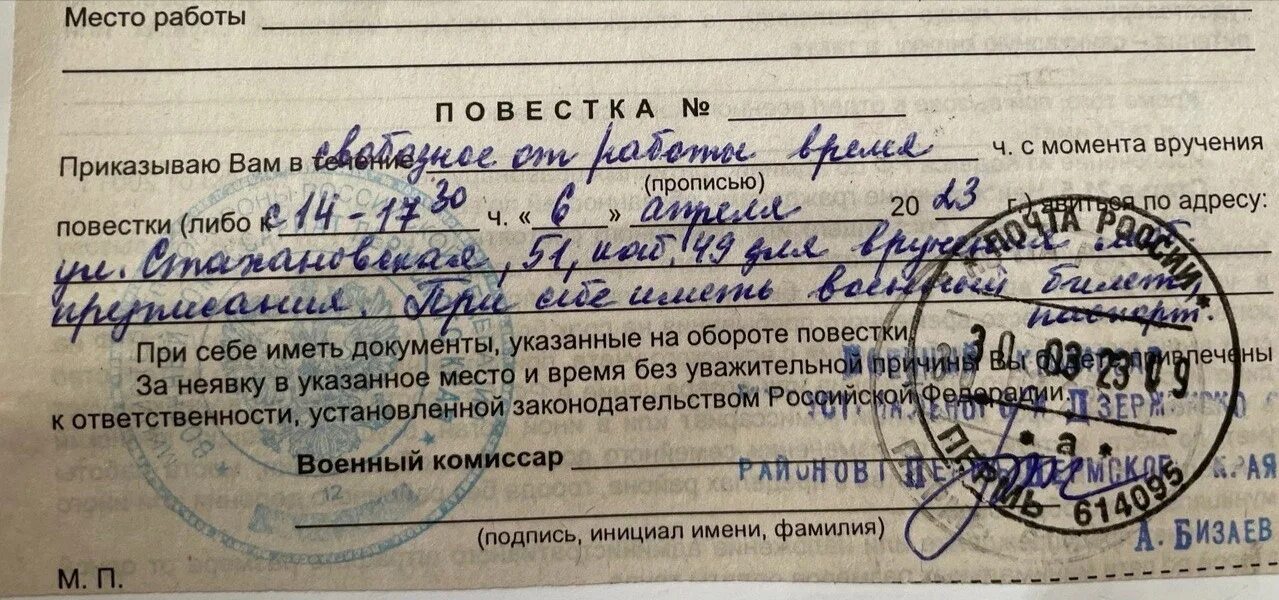 Место работы
ПОВЕСТКА №
Приказываю Вам в течение свободное от работы время ч. с момента вручения
(прописью)
повестки (либо к с 14-17 30 ч. « 6 » апреля 20 23 г.) явиться по адресу:
ул. Стахановская, 51, каб. 49 для вручения моб.
предписания. При себе иметь военный билет,
паспорт.
При себе иметь документы, указанные на обороте повестки.
За неявку в указанное место и время без уважительной причины Вы будете привлечены
к ответственности, установленной законодательством Российской Федерации.
Военный комиссар
(подпись, инициал имени, фамилия)
М. П.
ПОЧТА РОССИИ
30 03 23 09
* а *
ПЕРМЬ 614095
ДЗЕРЖИНСКО
РАЙОНОВ КРАЯ
А. БИЗАЕВ
12